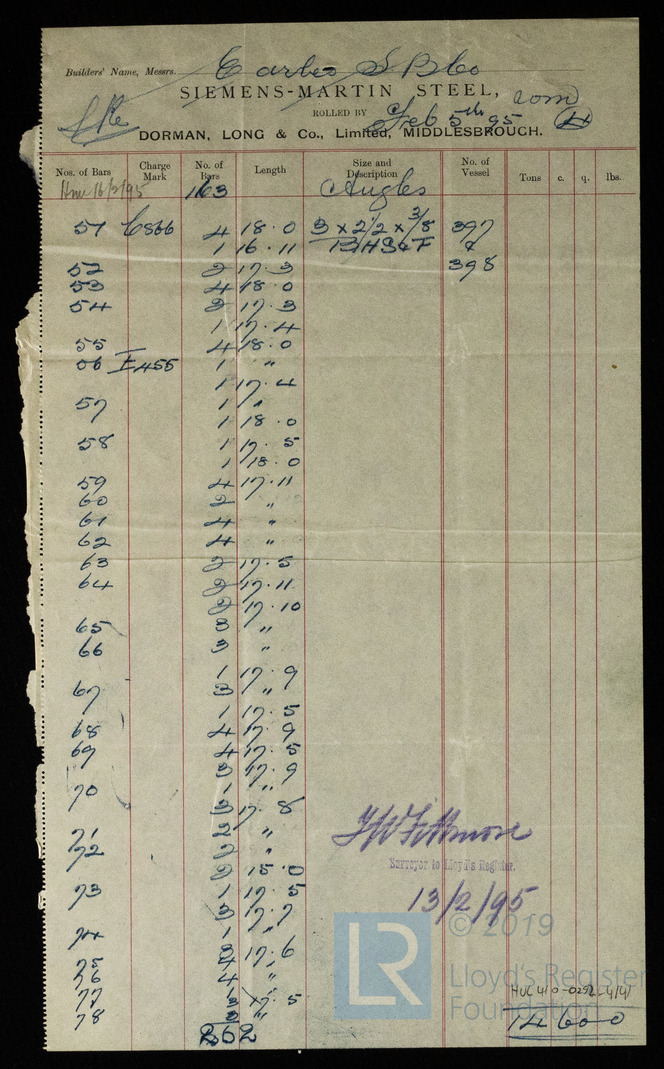 Builders' Name, Messrs. Earles S B Co
SIEMENS-MARTIN STEEL,
ROLLED BY Feb 5th 95
DORMAN, LONG & Co., Limited, MIDDLESBROUGH.
Nos. of Bars Charge Mark No. of Bars Length Size and Description No. of Vessel Tons c. q. lbs.
16/2/95 163 Angles
51 C866 4 18.0 3 x 2 1/2 x 3/8 397
1 16.11 &
52 2 17.3 398
53 4 18.0
54 2 17.3
1 17.4
55 4 18.0
56 I455 1 "
1 17.4
57 1 "
1 18.0
58 1 17.5
1 18.0
59 4 17.11
60 2 "
61 4 "
62 4 "
63 2 17.5
64 2 17.11
2 17.10
65 3 "
66 3 "
1 17.9
67 3 "
1 17.5
68 4 17.9
69 4 17.5
3 17.9
70 1 "
3 17.8
71 2 "
72 2 "
2 15.0
73 1 17.5
3 17.7
74 1 "
3 17.6
75 4 "
76 4 "
77 3 17.5
78 3 "
262
Surveyor to Lloyd's Register.
13/2/95
© 2019
LR
Lloyd's Register
Foundation
14 600